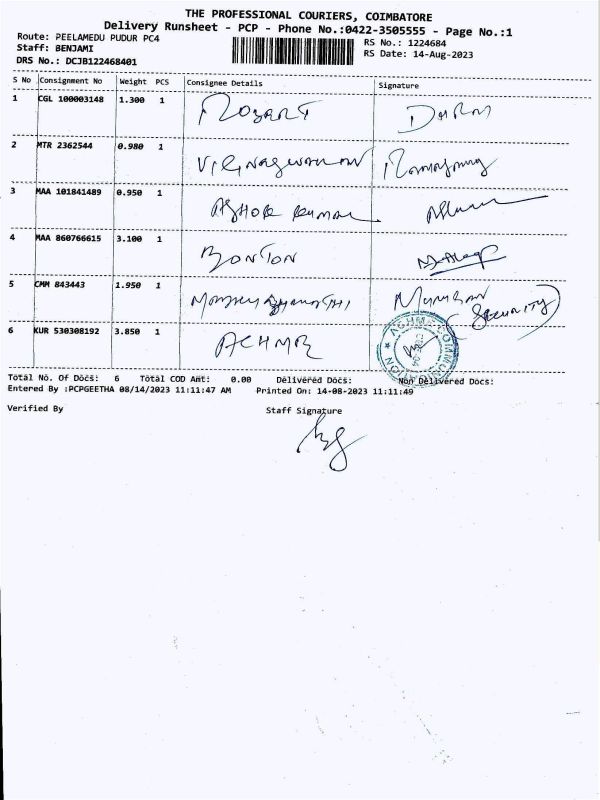 THE PROFESSIONAL COURIERS, COIMBATORE
Delivery Runsheet - PCP - Phone No.:0422-3505555 - Page No.:1
Route: PEELAMEDU PUDUR PC4
RS No.: 1224684
Staff: BENJAMI
RS Date: 14-Aug-2023
DRS No.: DCJB122468401
S No Consignment No Weight PCS Consignee Details Signature
1 CGL 100003148 1.300 1 MOZART
2 MTR 2362544 0.980 1
3 MAA 101841489 0.950 1 ASHOK KUMAR
4 MAA 860766615 3.100 1 BONTON
5 CMM 843443 1.950 1 MURUGAN
(SECURITY)
6 KUR 530308192 3.850 1 ACHME
ACHME COMMUNICATION
Total No. Of Docs: 6 Total COD Amt: 0.00 Delivered Docs: Non Delivered Docs:
Entered By :PCPGEETHA 08/14/2023 11:11:47 AM Printed On: 14-08-2023 11:11:49
Verified By Staff Signature